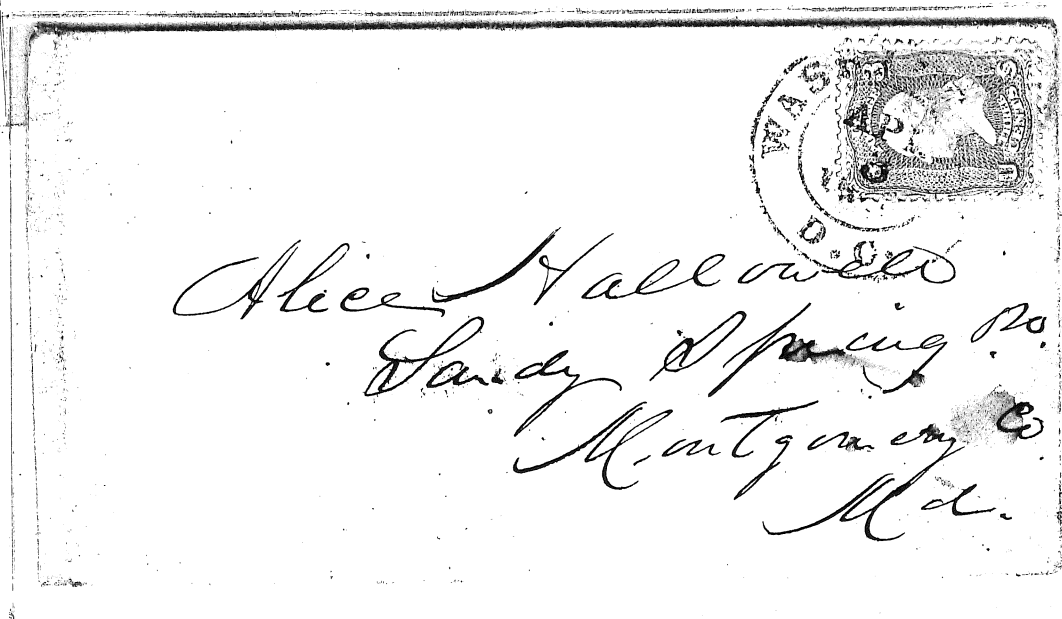 WAS
APR
D.C.
Alice Hallowell
Sandy Spring P.O.
Montgomery Co
Md.